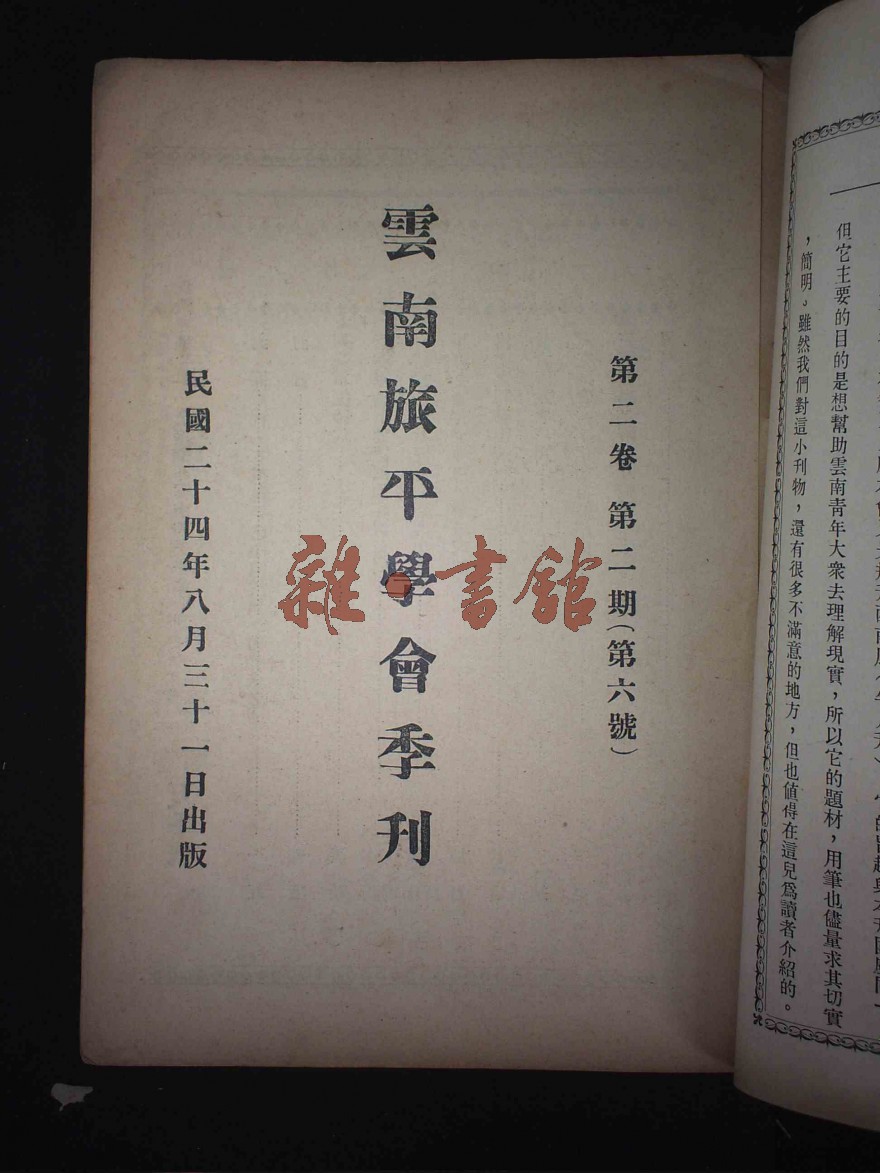 但它主要的目的是想幫助雲南青年大衆去理解現實，所以它的題材，用筆也儘量求其切實
，簡明。雖然我們對這小刊物，還有很多不滿意的地方，但也值得在這兒爲讀者介紹的。
第二卷 第二期（第六號）
雲南旅平學會季刊
民國二十四年八月三十一日出版
雜·書館